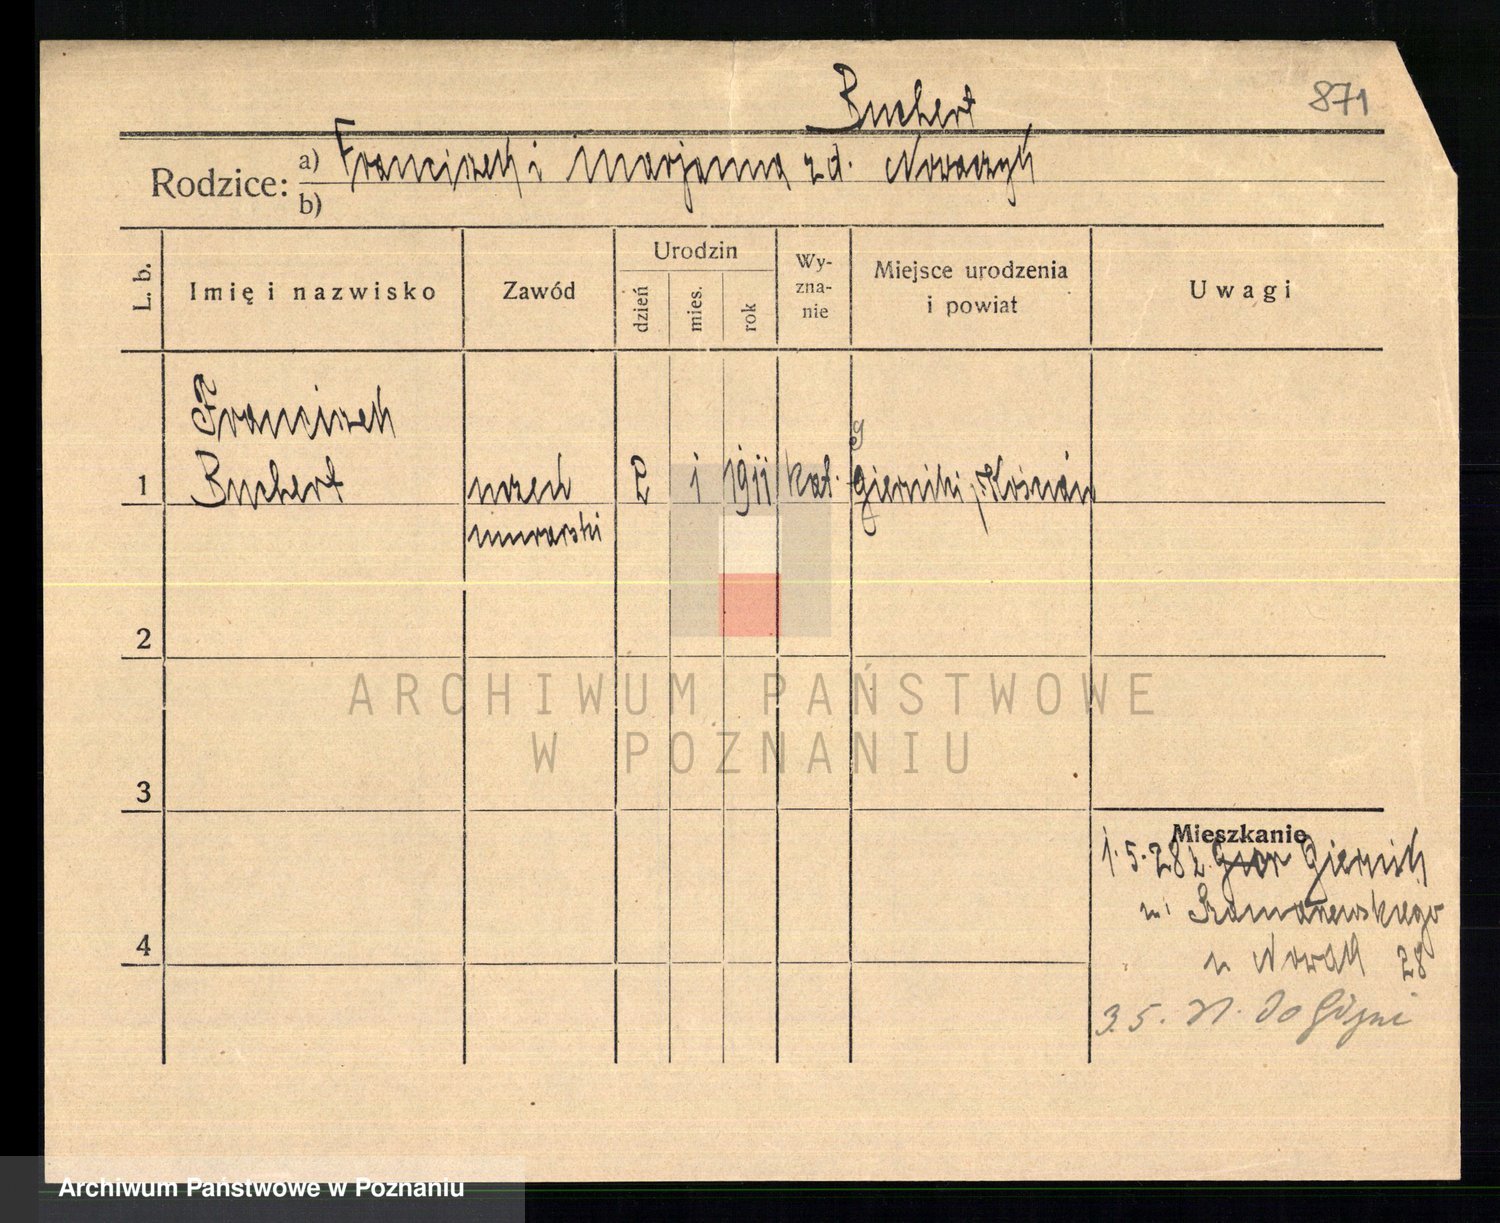 Buchert
871
Rodzice: a) Franciszek i Marjanna zd. Nowaczyk
b)
L. b.
Imię i nazwisko
Zawód
Urodzin
dzień
mies.
rok
Wy-
zna-
nie
Miejsce urodzenia
i powiat
Uwagi
Franciszek
1 Buchert uczeń 2 1 1911 kat. Gierniki p. Kościan
murarski
2
ARCHIWUM PAŃSTWOWE
W POZNANIU
3
Mieszkanie
1.5.28 z Giernik
Szamarzewskiego
u Nowak 28
3.5. do Gdyni
4
Archiwum Państwowe w Poznaniu